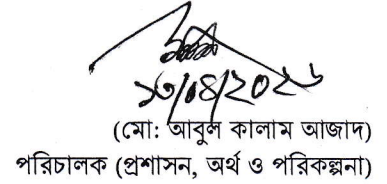 ১৩/০৪/২০২৬
(মো: আবুল কালাম আজাদ)
পরিচালক (প্রশাসন, অর্থ ও পরিকল্পনা)